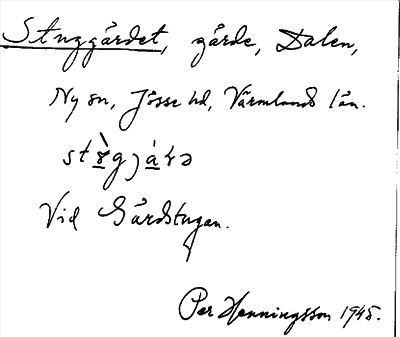 Stuggärdet, gärde, Dalen,
Ny sn, Jösse hd, Värmlands län.
Vid Gårdstugan.
Per Henningsson 1945.